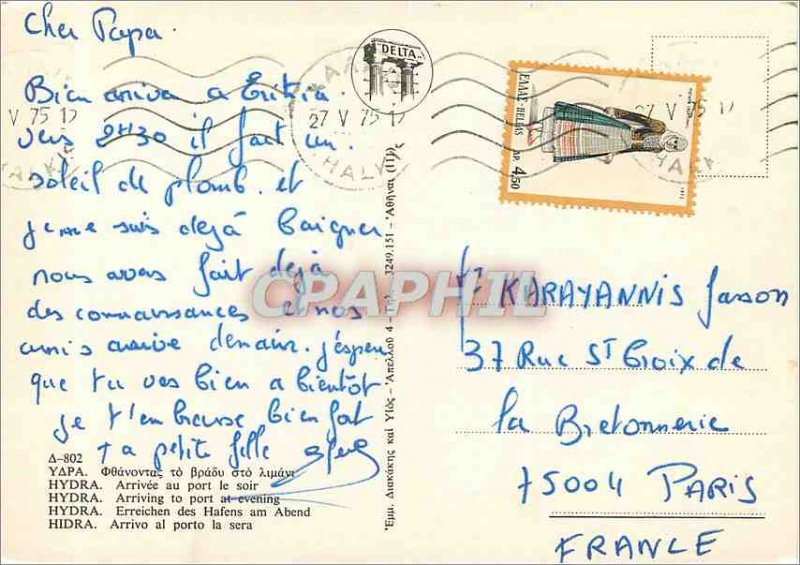 Cher Papa.
Bien arriva a Eritria.
vers 2H30 il fait un
soleil de plomb. et
je me suis dejà baigner
nous avons fait dejà
des connaissances et nos
amis arrive demain. j'espere
que tu vas bien a bientôt
je t'embrasse bien fort
ta petite fille
DELTA
27 V 75
V 75
27 V 75
ΕΛΛΑΣ-HELLAS
ΔΡ. 4,50
CPAPHIL
Mr KARAYANNIS Jason
37 Rue St Croix de
la Bretonnerie
75004 PARIS
FRANCE
Δ-802
ΥΔΡΑ. Φθάνοντας τὸ βράδυ στὸ λιμάνι
HYDRA. Arrivée au port le soir
HYDRA. Arriving to port at evening
HYDRA. Erreichen des Hafens am Abend
HIDRA. Arrivo al porto la sera
Ἐμμ. Διακάκης καὶ Υἱὸς - Ἀπέλλου 4 - Τηλ. 3249.151 - Ἀθῆναι (112)